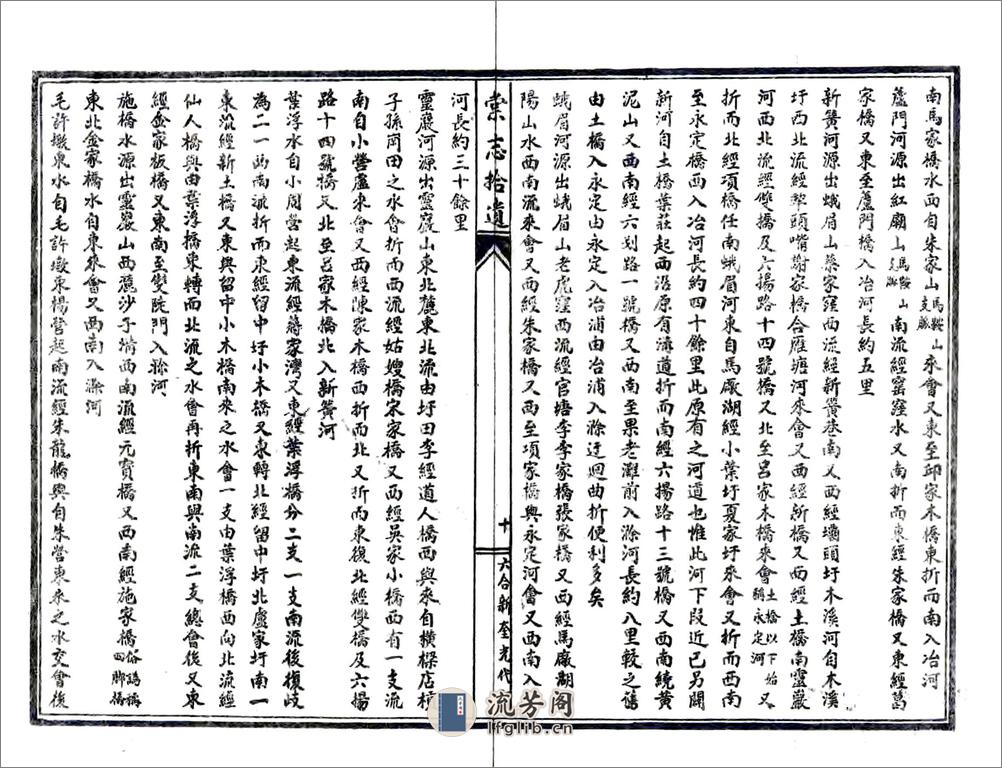 南馬家橋水西自朱家山馬鞍山支脈來會又東至邱家木橋東折而南入冶河
蘆門河源出紅廟山馬鞍山支脈南流經窰窪水又南折而東經朱家橋又東經葛
家橋又東至蘆門橋入冶河長約五里
新簧河源出蛾眉山蔡家窪西流經新簧巷南又西經壩頭圩木溪河自木溪
圩西北流經犂頭嘴謝家橋合雁塘河來會又西經新橋又西經土橋南靈巖
河西北流經雙橋及六揚路十四號橋又北至呂家木橋來會土橋以下始又稱永定河
折而北經項橋任南蛾眉河東自馬廠湖經小葉圩夏家圩來會又折而西南
至永定橋西入冶河長約四十餘里此原有之河道也惟此河下段近已另開
新河自土橋葉莊起西沿原有溝道折而南經六揚路十三號橋又西南繞黃
泥山又西南經六划路一號橋又西南至果老灘前入滁河長約八里較之舊
由土橋入永定由永定入冶浦由冶浦入滁迂迴曲折便利多矣
蛾眉河源出蛾眉山老虎窪西流經官塘李李家橋張家橋又西經馬廠湖
陽山水西南流來會又西經朱家橋又西至項家橋與永定河會又西南入
棠志拾遺
十
六合新奎光代
河長約三十餘里
靈巖河源出靈巖山東北麓東北流由圩田李經道人橋西與來自橫樑店
子孫岡田之水會折而西流經姑嫂橋宋家橋又西經吳家小橋西有一支流
南自小營盧來會又西經陳家木橋西折而北又折而東復北經雙橋及六揚
路十四號橋又北至呂家木橋北入新簧河
葉浮水自小周營起東流經蔣家灣又東經葉浮橋分二支一支南流後復歧
為二一西南流折而東經留中圩小木橋又東轉北經留中圩北盧家圩南一
東流經新土橋又東與留中小木橋南來之水會一支由葉浮橋西向北流經
仙人橋與由葉浮橋東轉而北流之水會再折東南與南流二支總會後又東
經金家板橋又東南至雙陡門入滁河
施橋水源出靈巖山西麓沙子凹西南流經元寶橋又西南經施家橋俗譌稱四腳橋
東北金家橋水自東來會又西南入滁河
毛許墩東水自毛許墩東楊營起南流經朱龍橋與自朱營東來之水交會後
流芳阁
lfglib.cn